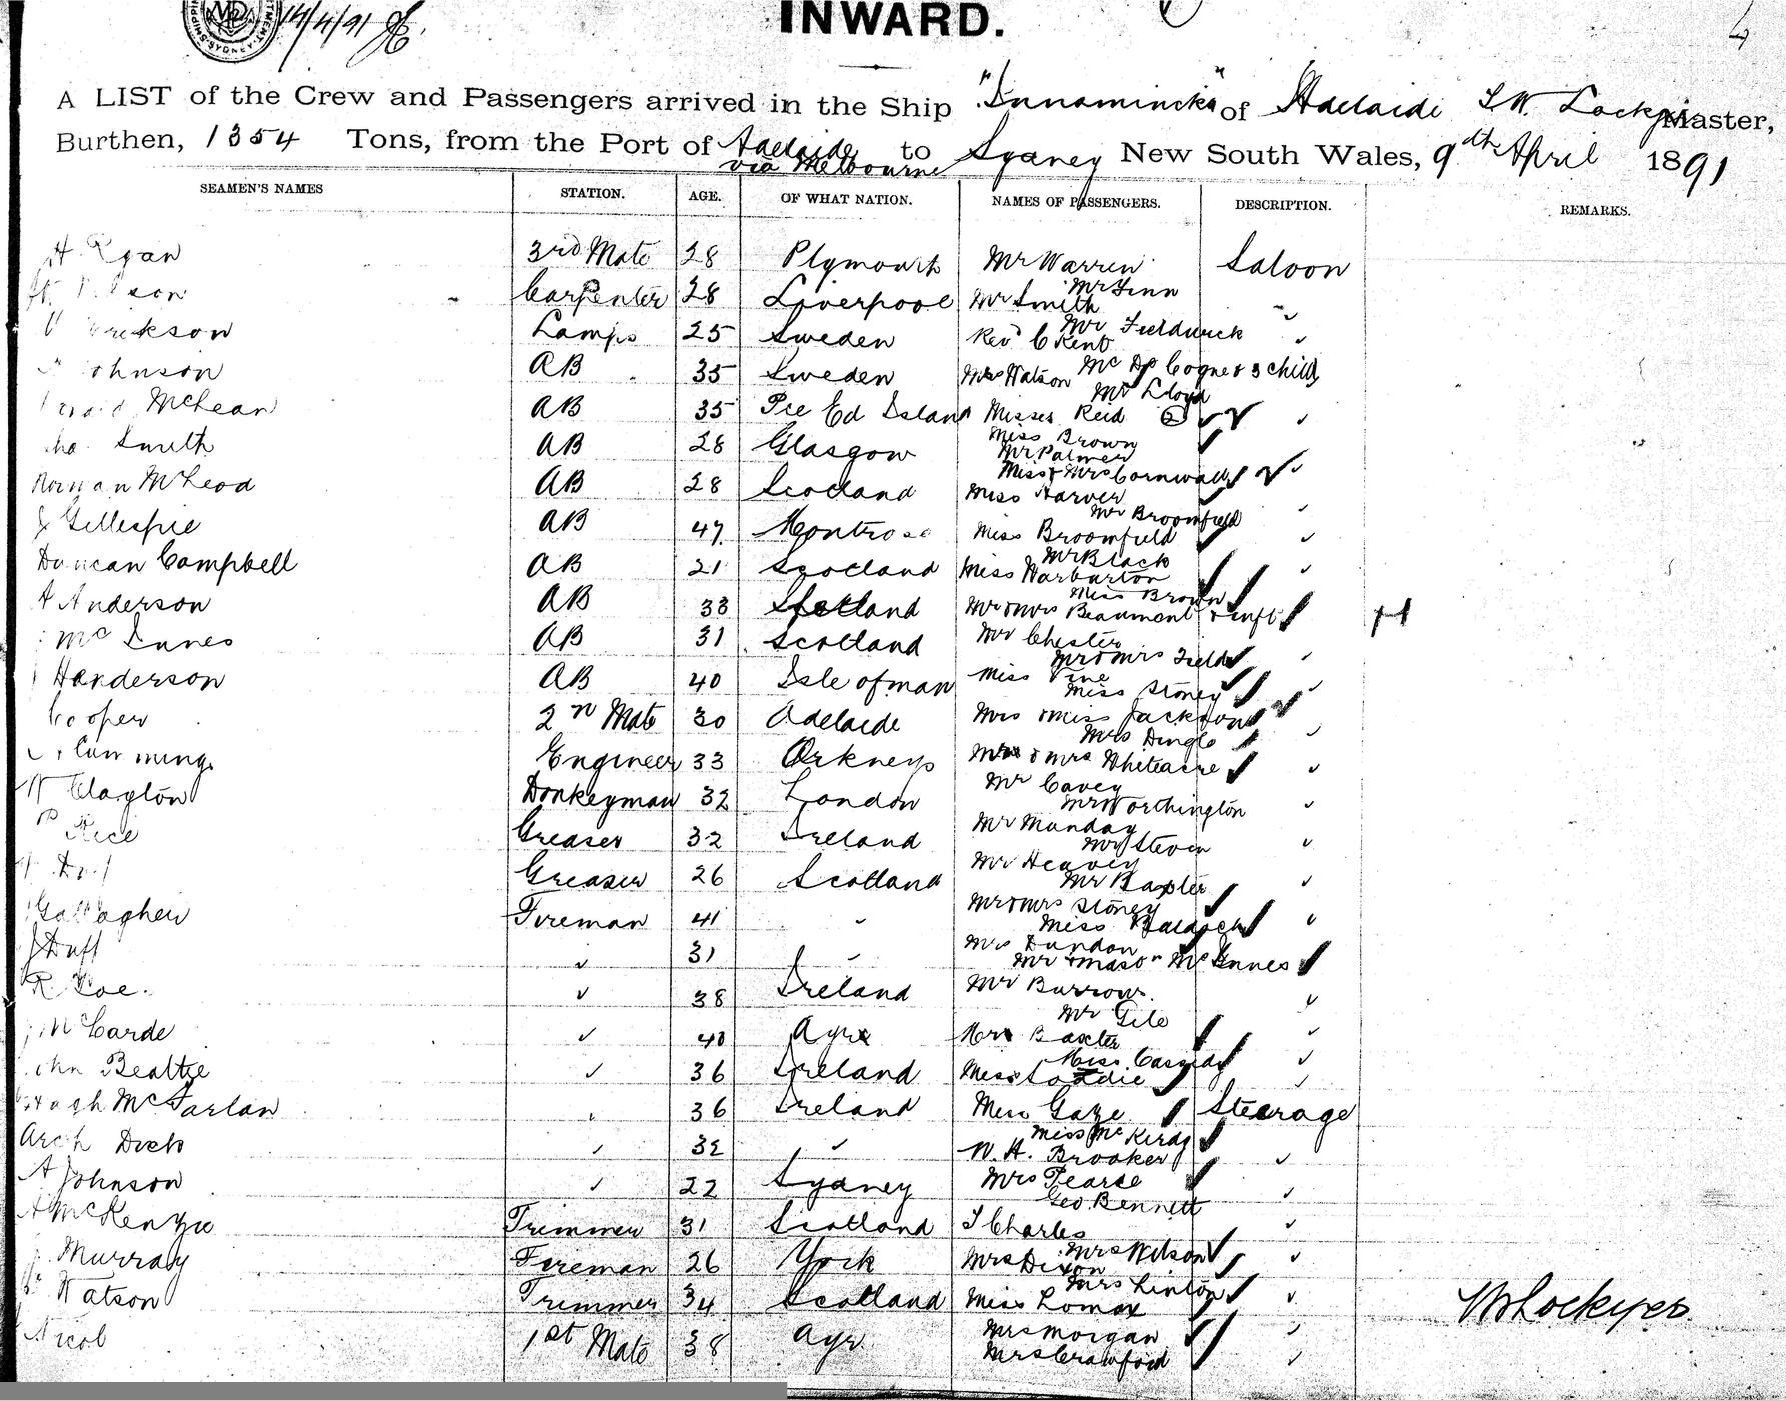 14/4/91
INWARD.
4
A LIST of the Crew and Passengers arrived in the Ship "Innamincka" of Adelaide Master,
Burthen, 1354 Tons, from the Port of Adelaide via Melbourne to Sydney New South Wales, 9th April 1891
SEAMEN'S NAMES STATION. AGE. OF WHAT NATION. NAMES OF PASSENGERS. DESCRIPTION. REMARKS.
Ryan 3rd Mate 28 Plymouth Mr Warren Saloon
Carpenter 28 Liverpool Mr Smith Mr Finn
Lamps 25 Sweden Revd C Kent Mr Fieldwick
Johnson AB 35 Sweden Mrs Watson & 3 child
Mr Lloyd
McLean AB 35 Pce Ed Island Misses Reid 2
Smith AB 28 Glasgow Miss Brown
Mr Palmer
Norman McLeod AB 28 Scotland Miss & Mrs Cornwall
Miss Harver
Gillespie AB 47 Montrose Mr Broomfield
Miss Broomfield
Duncan Campbell AB 21 Scotland Mr Black
Miss Warburton
Anderson AB 33 Miss Brown
Mr & Mrs Beaument & inft
McInnes AB 31 Scotland Mr Chester
Mr & Mrs Field
Henderson AB 40 Isle of man Miss Vine
Miss Stoney
Cooper 2nd Mate 30 Adelaide Mrs & Miss Jackson
Mrs Dingle
Cumming Engineer 33 Orkneys & Mrs Whiteacre
W Clayton Donkeyman 32 London Mr Cavey
Mr Worthington
Rice Greaser 32 Ireland Mr Munday
Mr Steven
Greaser 26 Scotland Mr Heavey
Mr Baxter
Gallagher Fireman 41 " Mr & Mrs Stoney
Miss
J Duff " 31 " Dundon
Mr & Mast McInnes
R " 38 Ireland Mr Burrows
Mr Gile
McCarde " 40 Ayr Baxter
Miss Cassidy
John Beattie " 36 Ireland Miss
Hugh McFarlan " 36 Ireland Miss Gaze Steerage
Miss McKirdy
Arch Dick " 32 " W. H. Brooker
A Johnson " 22 Sydney Mrs Pearse
Geo Bennett
A McKenzie Trimmer 31 Scotland J Charles
Murray Fireman 26 York Mrs Dixon Mrs Wilson
Watson Trimmer 34 Scotland Miss Lomax Mrs Linton
Nicol 1st Mate 38 Ayr Mrs Morgan
Mrs Crawford
Lockyer